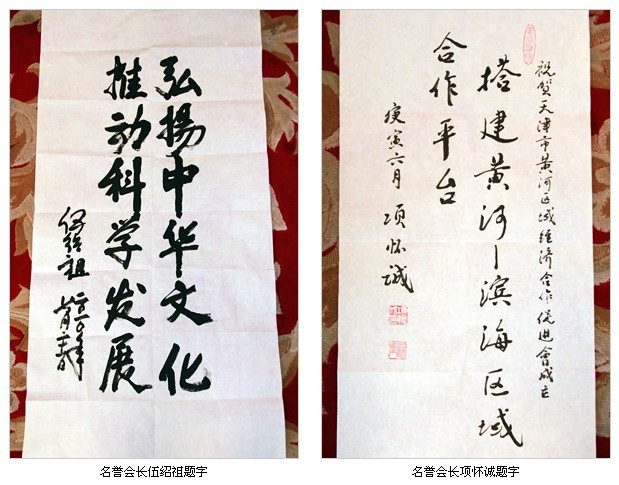 弘揚中华文化
推动科学发展
伍绍祖
二〇一〇年
名誉会长伍绍祖题字
祝贺天津市黄河区域经济合作促進會成立
搭建黄河—滨海区域
合作平台
庚寅六月 项怀诚
名誉会长项怀诚题字